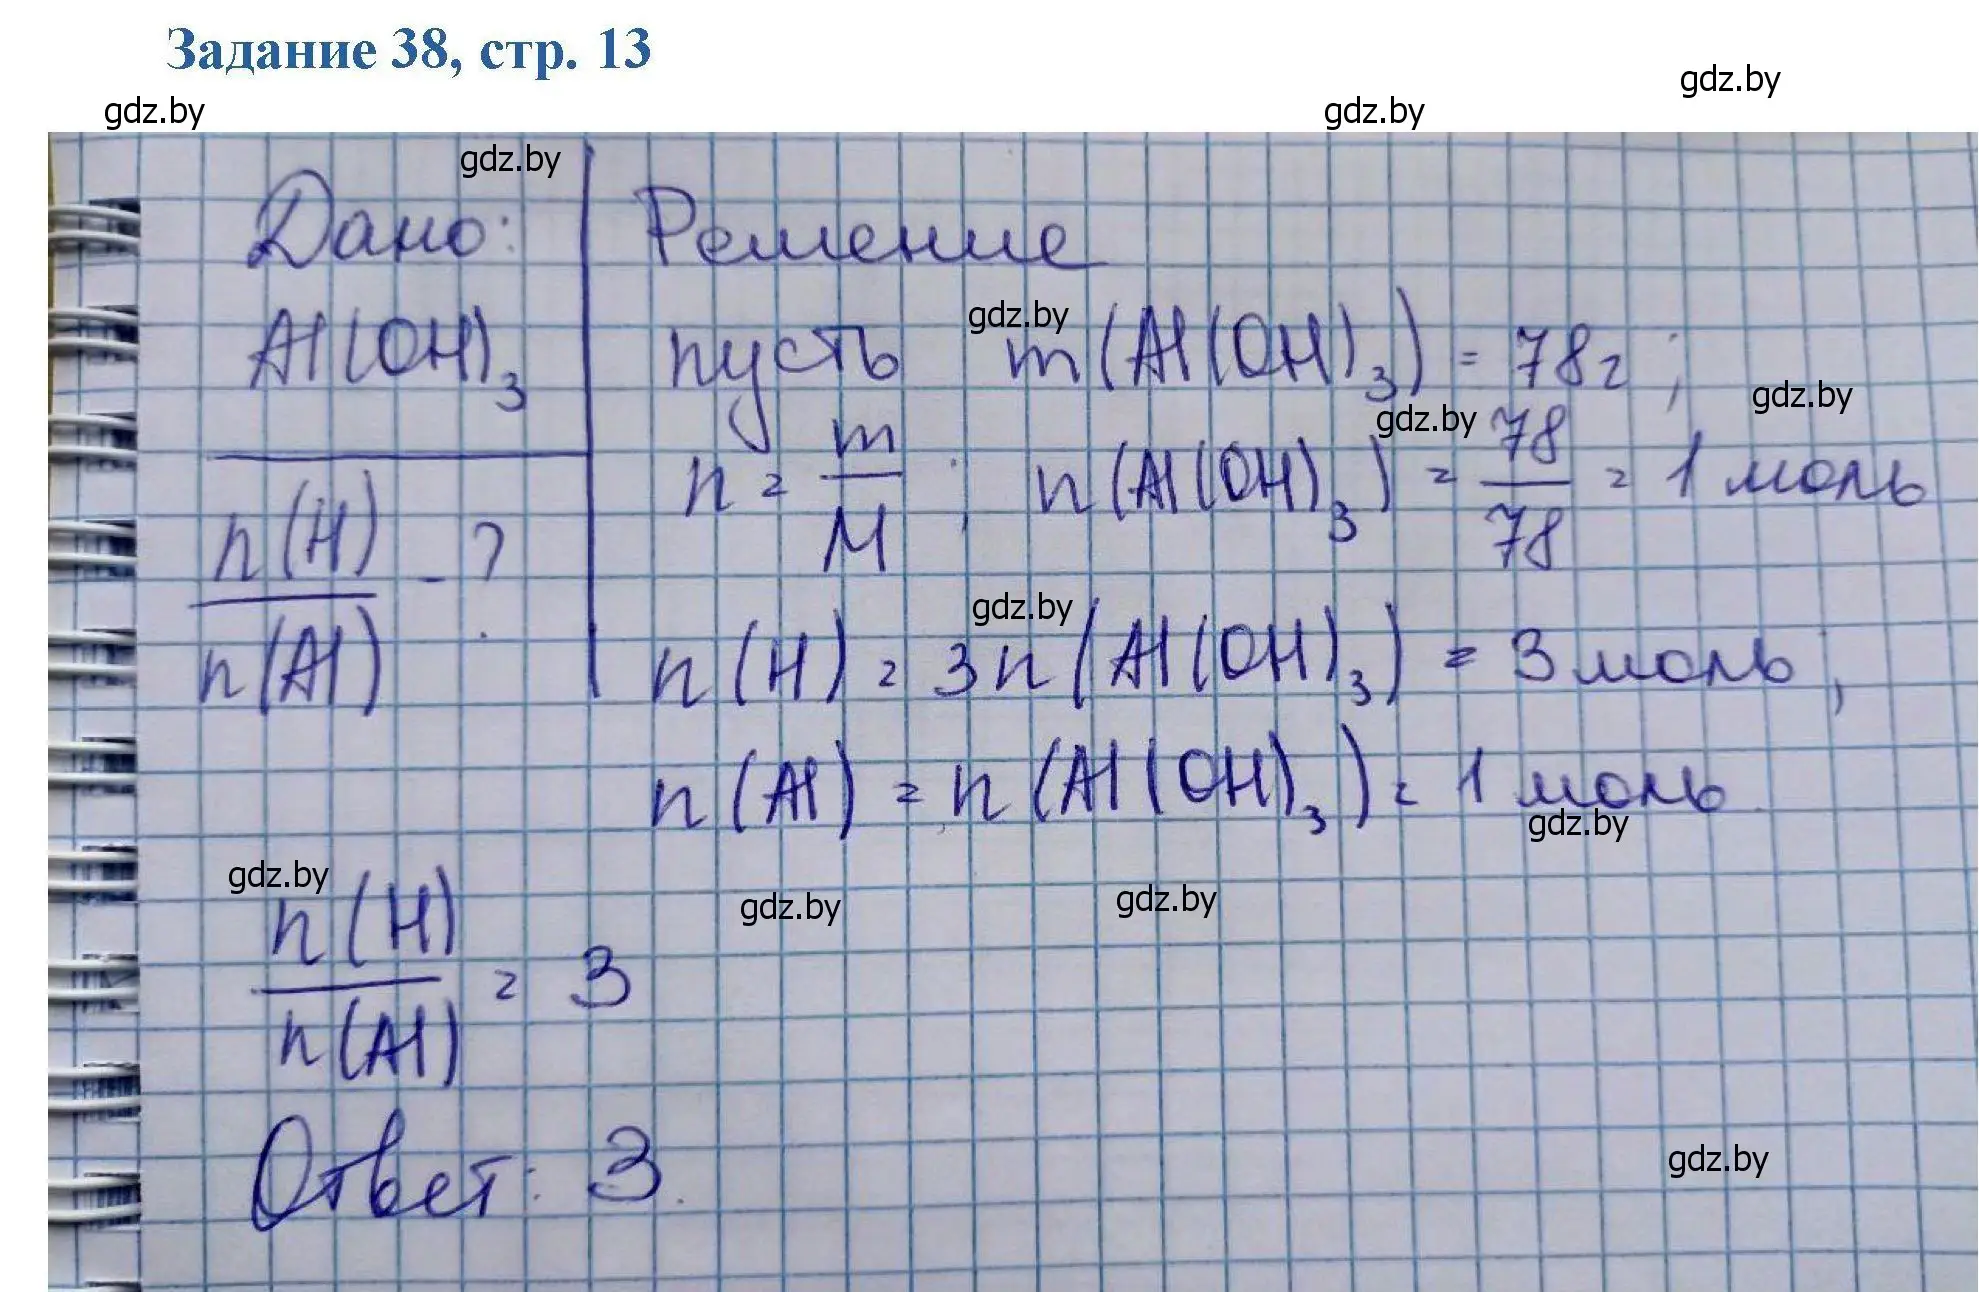 Задание 38, стр. 13
gdz.by
gdz.by gdz.by
gdz.by
Дано: Решение
Al(OH)₃ пусть m(Al(OH)₃) = 78г;
gdz.by
gdz.by
gdz.by
n = m/M; n(Al(OH)₃) = 78/78 = 1 моль
n(H)/n(Al) - ?
gdz.by
n(H) = 3n(Al(OH)₃) = 3 моль;
n(Al) = n(Al(OH)₃) = 1 моль.
gdz.by
gdz.by gdz.by gdz.by
n(H)/n(Al) = 3
Ответ: 3.
gdz.by